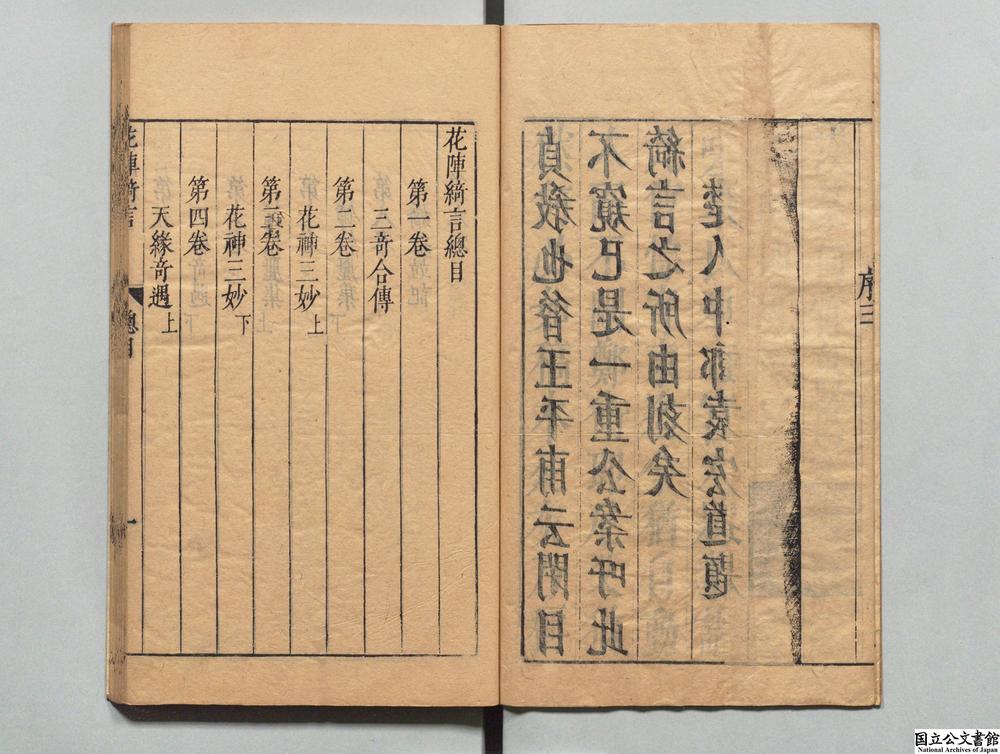 教也昔王平甫云閉目
不窺已是一重公案吁此
綺言之所由刻矣
楚人中郎袁宏道題
序三
花陣綺言總目
第一卷
三奇合傳
第二卷
花神三妙上
第三卷
花神三妙下
第四卷
天緣奇遇上
花陣綺言
總目
一
国立公文書館
National Archives of Japan